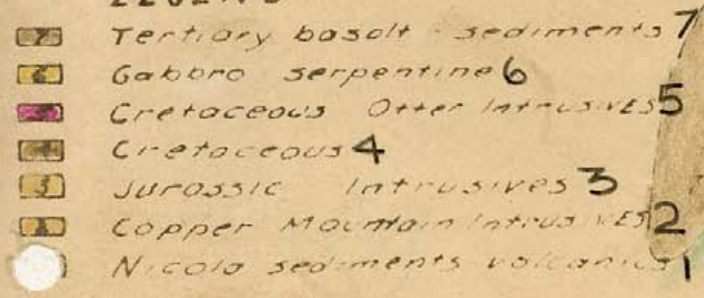 LEGEND
7 Tertiary basalt - sediments 7
6 Gabbro serpentine 6
Cretaceous Otter IntrusIVES 5
4 Cretaceous 4
3 Jurassic Intrusives 3
2 Copper Mountain IntrusIVES 2
Nicola sediments volcanics 1